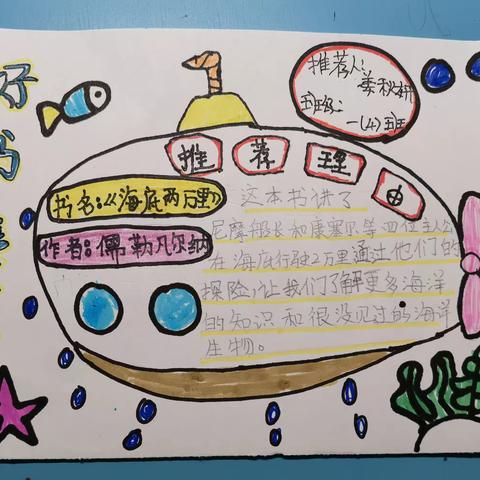 好书推
推荐人:
娄秋妍
班级:
一(4)班
推荐理由
书名:《海底两万里》
作者:儒勒凡尔纳
这本书讲了
尼摩船长和康塞尔等四位主人公
在海底行驶2万里通过他们的
探险,让我们了解更多海洋
的知识和很没见过的海洋
生物。